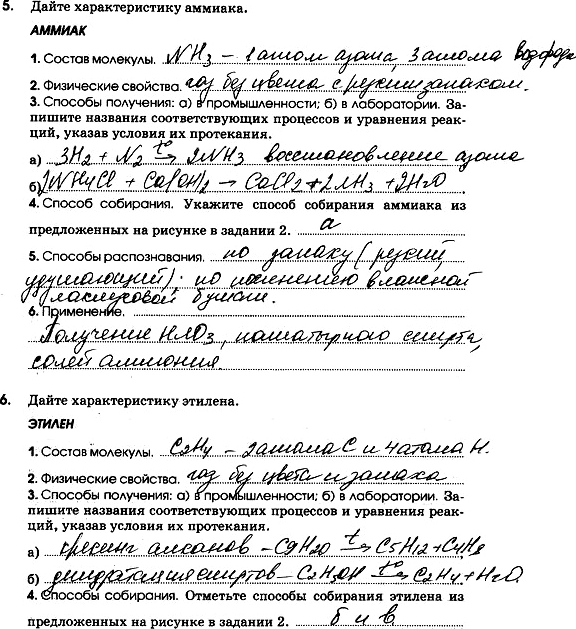 5. Дайте характеристику аммиака.
АММИАК
1. Состав молекулы. NH3 – 1 атом азота 3 атома водорода
2. Физические свойства. газ без цвета с резким запахом.
3. Способы получения: а) в промышленности; б) в лаборатории. За-
пишите названия соответствующих процессов и уравнения реак-
ций, указав условия их протекания.
а) 3H2 + N2 t°→ 2NH3 восстановление азота
б) 2NH4Cl + Ca(OH)2 → CaCl2 + 2NH3 + 2H2O
4. Способ собирания. Укажите способ собирания аммиака из
предложенных на рисунке в задании 2. а
5. Способы распознавания. по запаху (резкий
удушающий); по посинению влажной
лакмусовой бумаги.
6. Применение.
Получение HNO3, нашатырного спирта,
солей аммония.
6. Дайте характеристику этилена.
ЭТИЛЕН
1. Состав молекулы. C2H4 – 2 атома C и 4 атома H.
2. Физические свойства. газ без цвета и запаха
3. Способы получения: а) в промышленности; б) в лаборатории. За-
пишите названия соответствующих процессов и уравнения реак-
ций, указав условия их протекания.
а) крекинг алканов – C9H20 t→ C5H12 + C4H8
б) дегидратация спиртов – C2H5OH t°→ C2H4 + H2O
4. Способы собирания. Отметьте способы собирания этилена из
предложенных на рисунке в задании 2. б и в